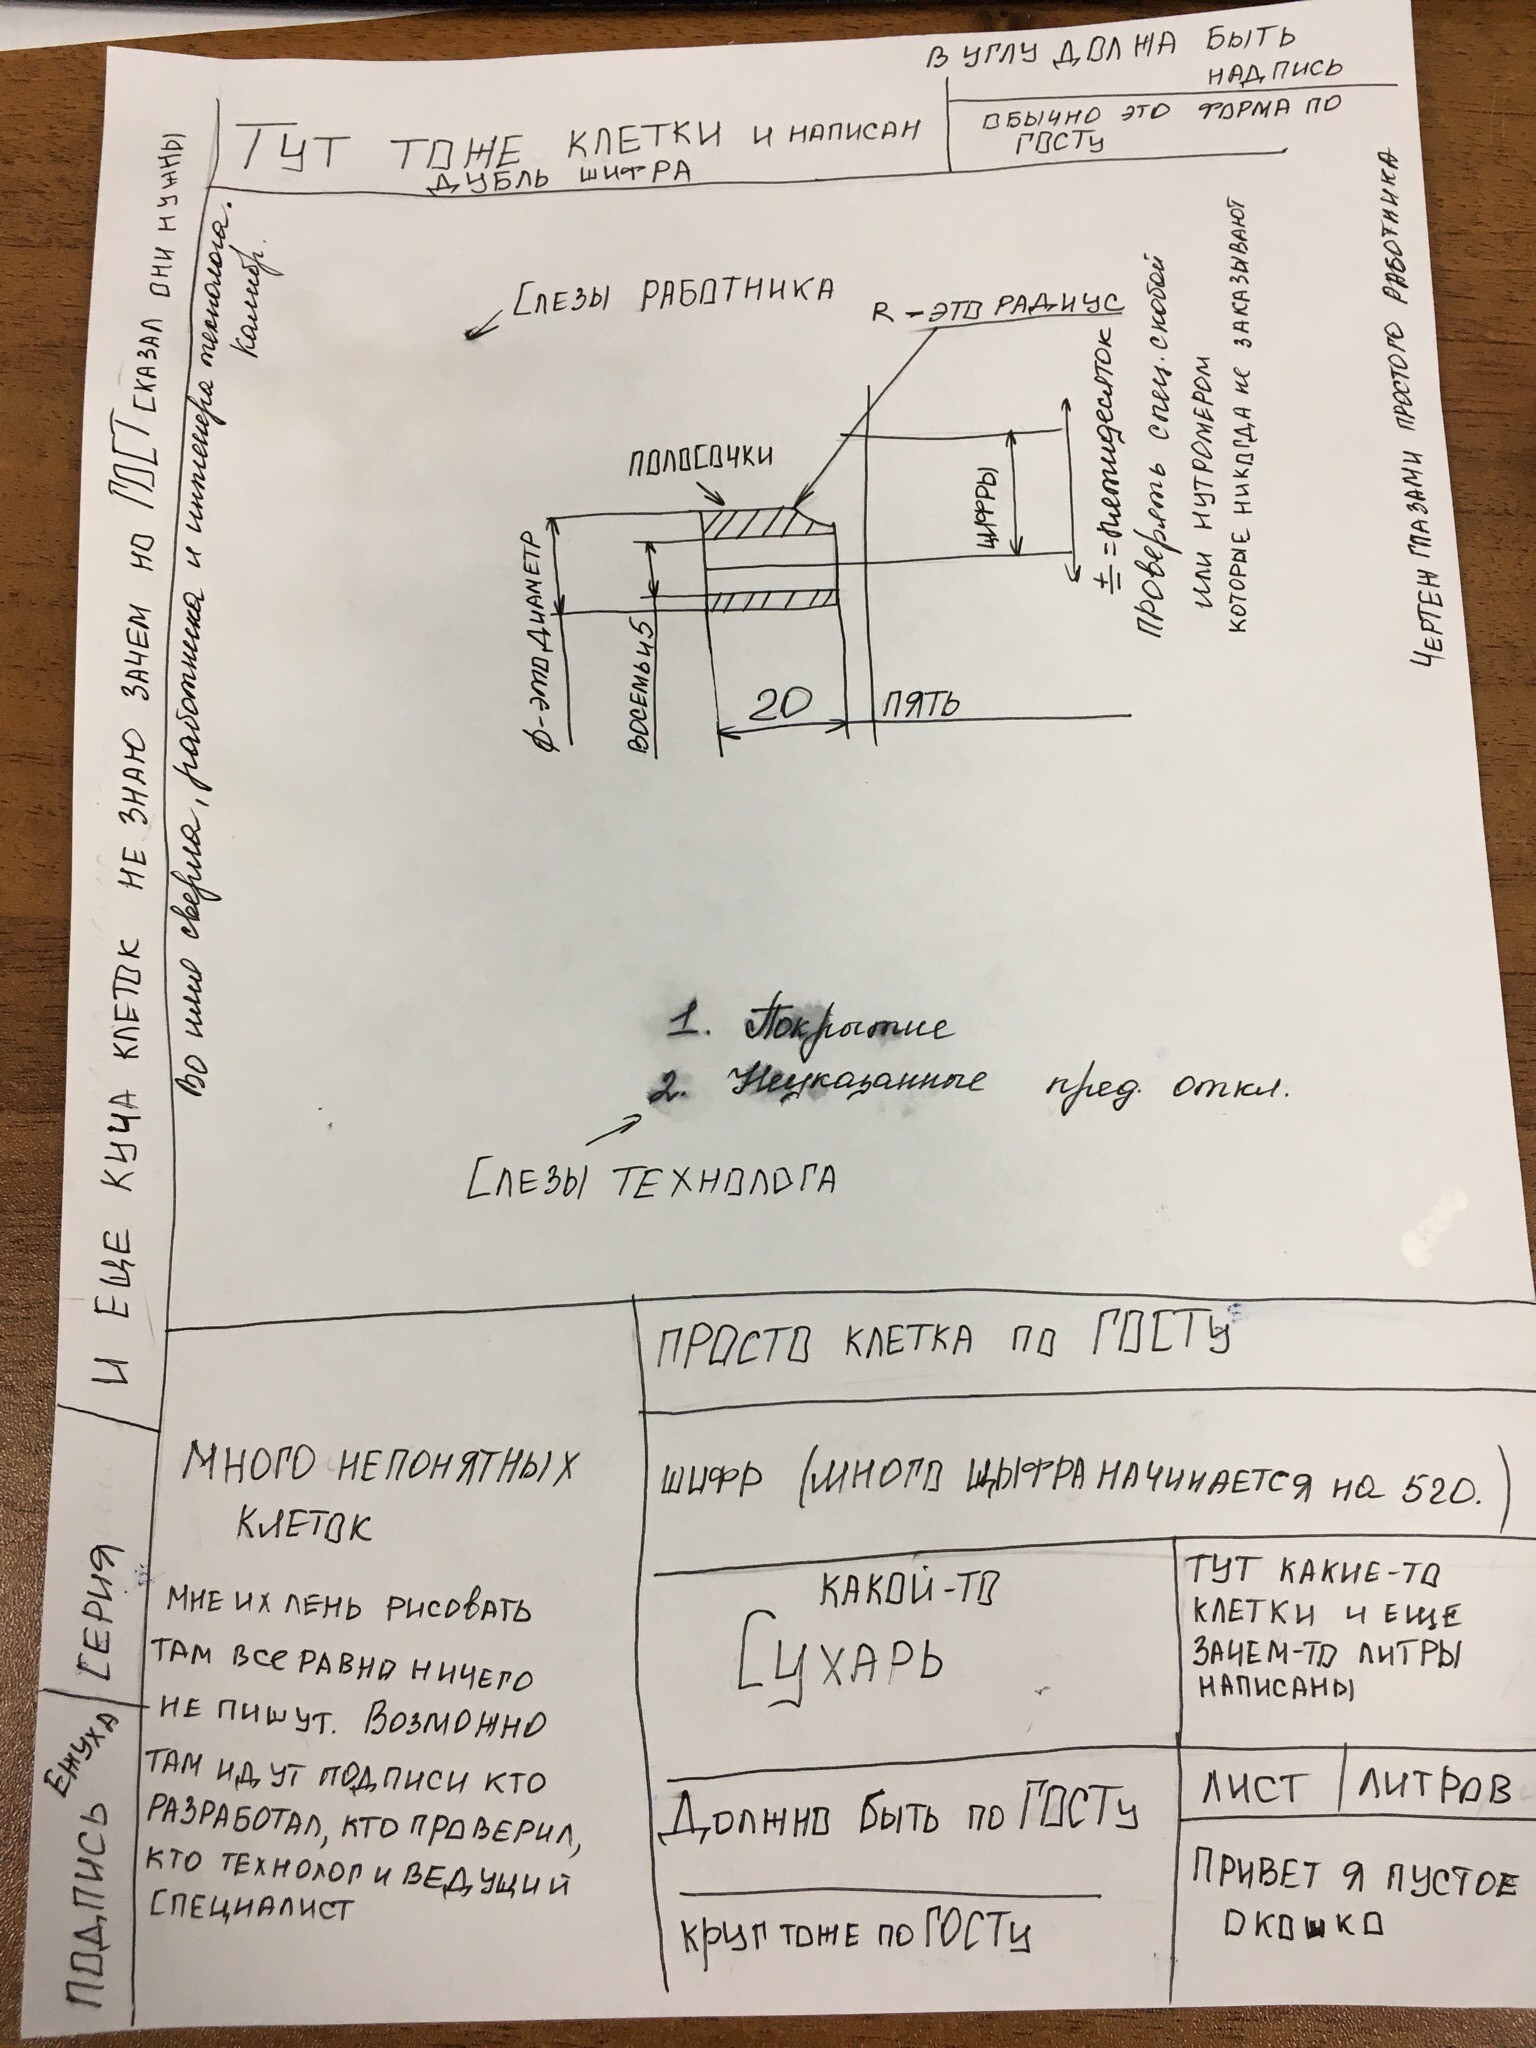 В УГЛУ ДОЛЖА БЫТЬ
НАДПИСЬ
ОБЫЧНО ЭТО ФОРМА ПО
ГОСТУ
ТУТ ТОЖЕ КЛЕТКИ И НАПИСАН
ДУБЛЬ ШИФРА
И ЕЩЕ КУЧА КЛЕТОК НЕ ЗНАЮ ЗАЧЕМ НО ГОСТ СКАЗАЛ ОНИ НУЖНЫ
Во имя сверла, работника и инженера технолога.
Калибр.
СЛЕЗЫ РАБОТНИКА
R - ЭТО РАДИУС
ПОЛОСОЧКИ
ЦИФРЫ
± = ПЯТИДЕСЯТОК
ПРОВЕРЯТЬ СПЕЦ. СКОБОЙ
ИЛИ НУТРОМЕРОМ
КОТОРЫЕ НИКОГДА НЕ ЗАКАЗЫВАЮТ
ЧЕРТЕЖ ГЛАЗАМИ ПРОСТОГО РАБОТНИКА
Ф - ЭТО ДИАМЕТР
ВОСЕМЬ И 5
20
ПЯТЬ
1. Покрытие
2. Неуказанные пред. откл.
СЛЕЗЫ ТЕХНОЛОГА
ПРОСТО КЛЕТКА ПО ГОСТУ
ШИФР (МНОГО ЩЫФРА НАЧИНАЕТСЯ НА 520.)
КАКОЙ-ТО
СУХАРЬ
ТУТ КАКИЕ-ТО
КЛЕТКИ И ЕЩЕ
ЗАЧЕМ-ТО ЛИТРЫ
НАПИСАНЫ
ЛИСТ
ЛИТРОВ
ДОЛЖНО БЫТЬ ПО ГОСТУ
КРУГ ТОЖЕ ПО ГОСТУ
ПРИВЕТ Я ПУСТОЕ
ОКОШКО
МНОГО НЕПОНЯТНЫХ
КЛЕТОК
МНЕ ИХ ЛЕНЬ РИСОВАТЬ
ТАМ ВСЕ РАВНО НИЧЕГО
НЕ ПИШУТ. ВОЗМОЖНО
ТАМ ИДУТ ПОДПИСИ КТО
РАЗРАБОТАЛ, КТО ПРОВЕРИЛ,
КТО ТЕХНОЛОГ И ВЕДУЩИЙ
СПЕЦИАЛИСТ
СЕРИЯ
ЕЖУХА
ПОДПИСЬ